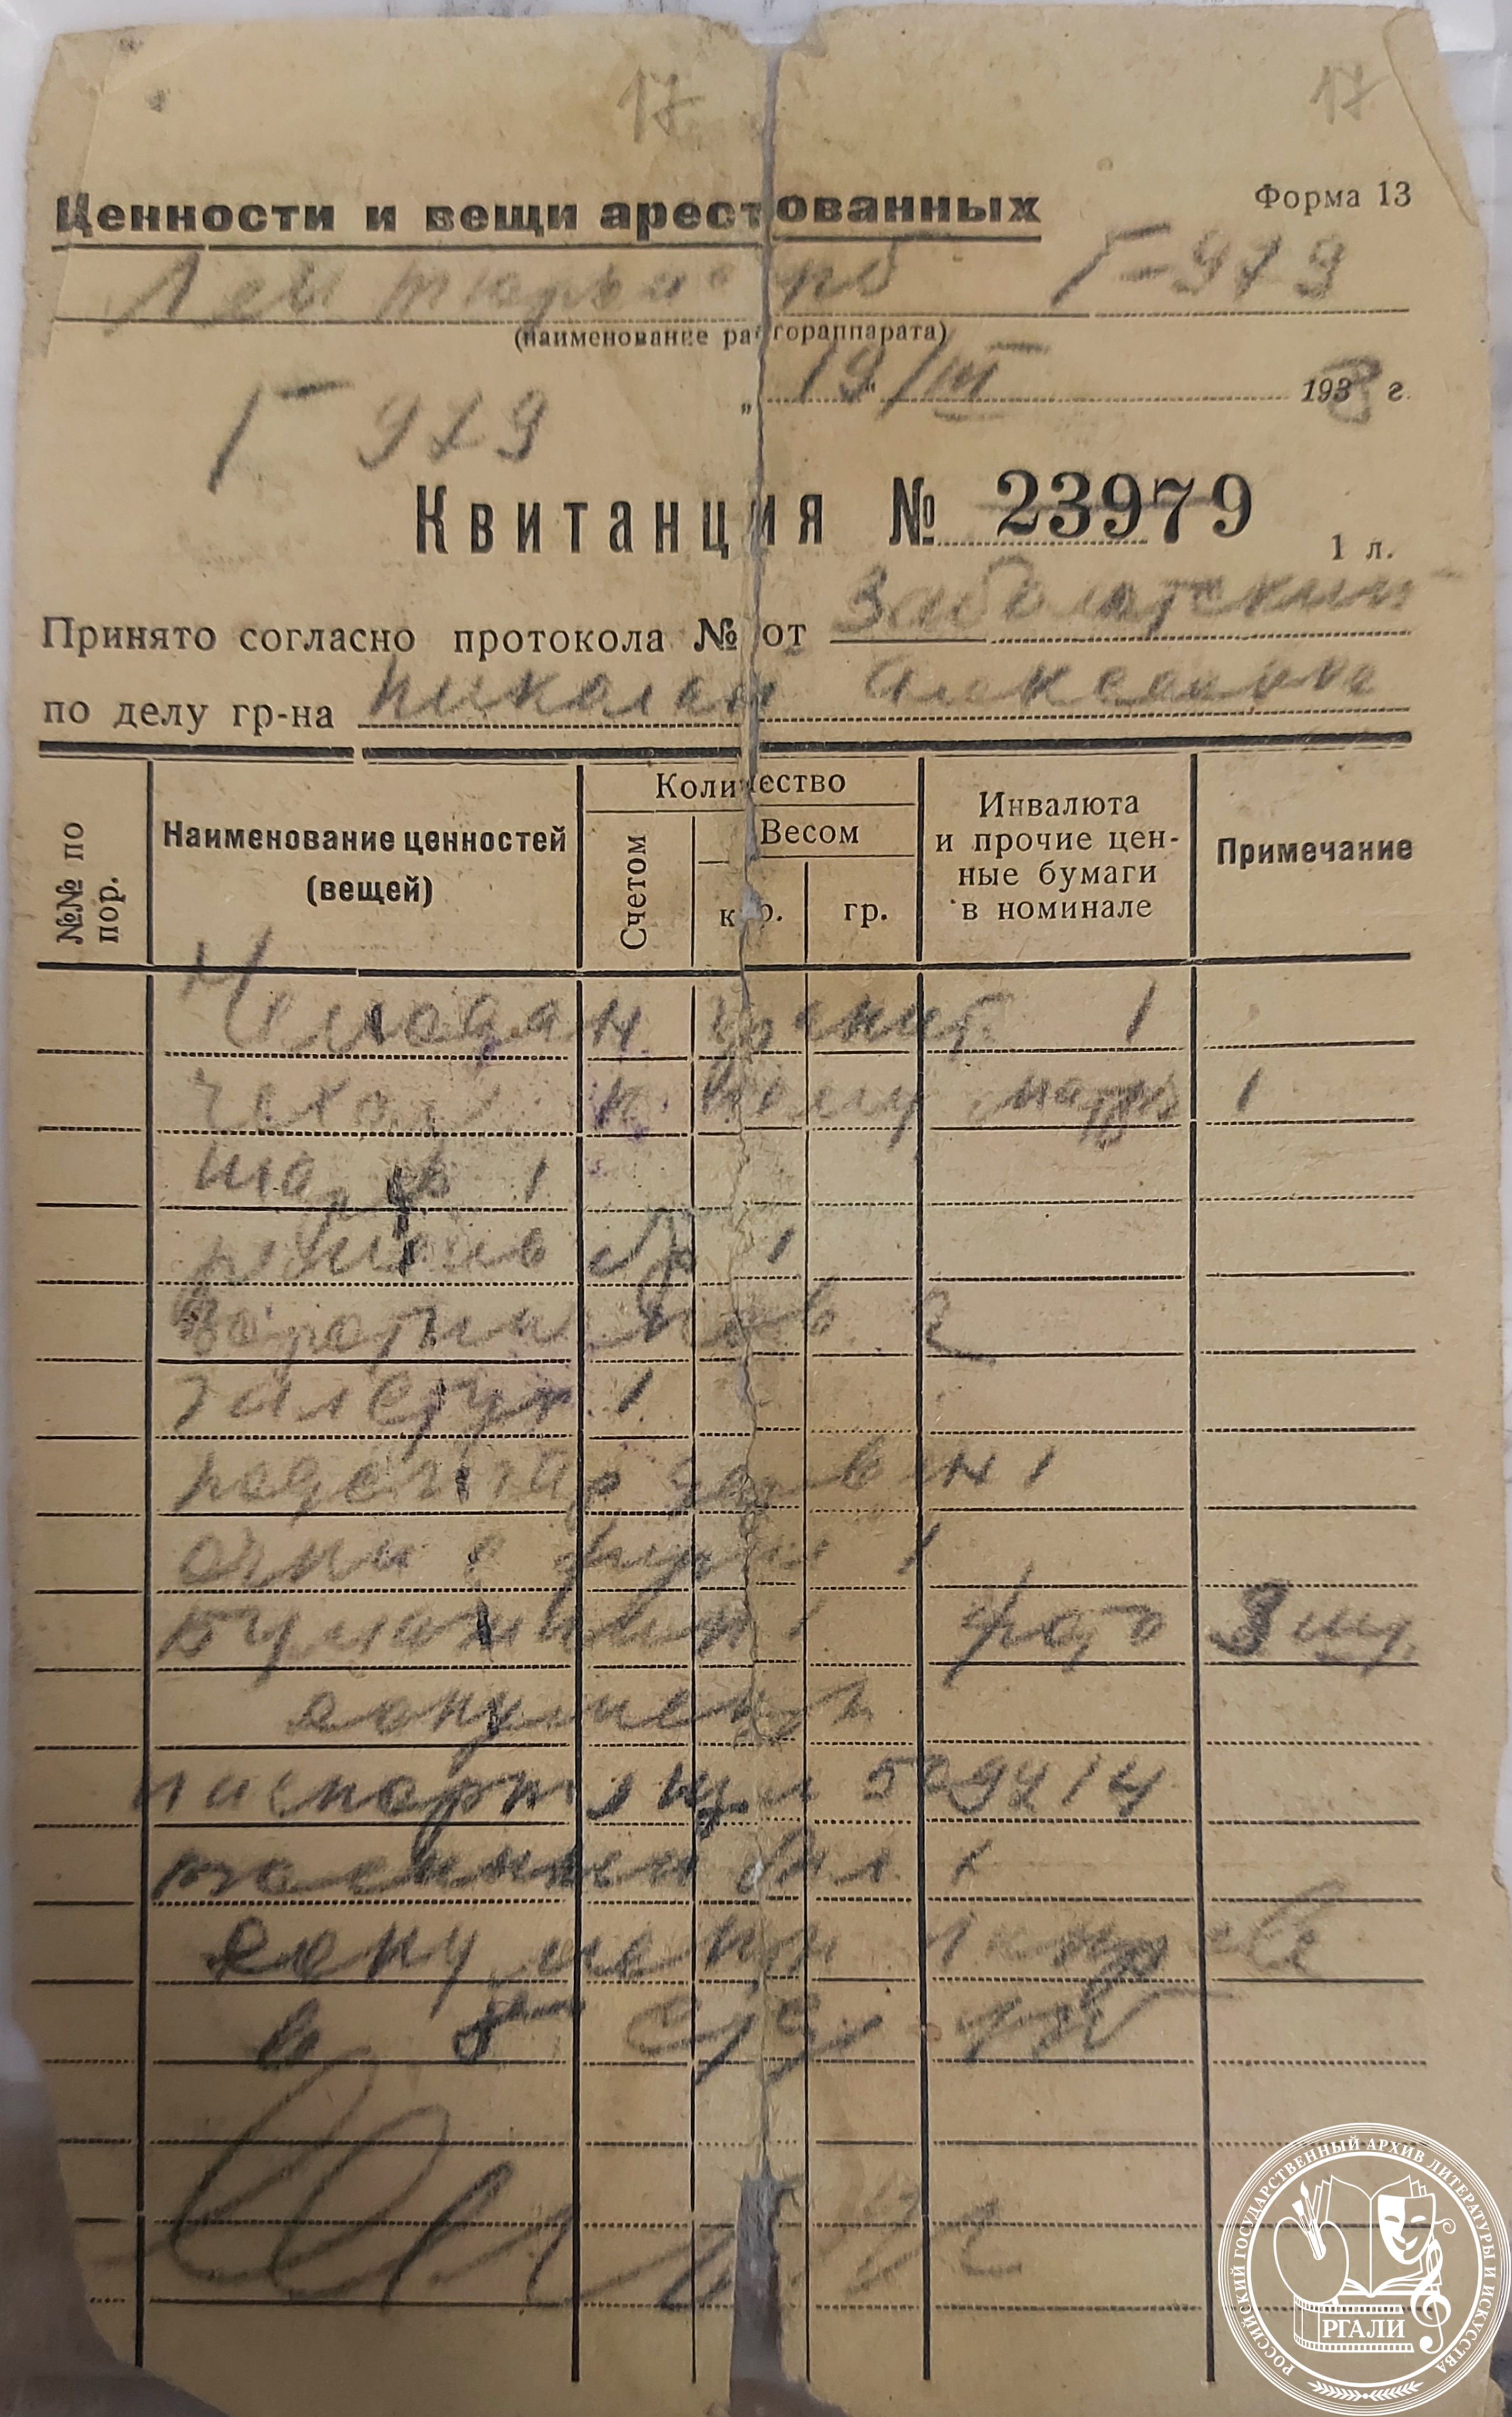 17 17
Ценности и вещи арестованных
Форма 13
Лен тюрьма Г-979
(наименование рай гораппарата)
„ 19 " /III 1938 г.
Г 979
Квитанция № 23979
1 л.
Принято согласно протокола № от Заболотский
по делу гр-на Николай Алексеевич
№№ по пор.
Наименование ценностей (вещей)
Количество
Счетом
Весом
кгр.
гр.
Инвалюта и прочие ценные бумаги в номинале
Примечание
Чемодан 1
чехол к 1
шарф 1
ремень 1
Воротничков 2
галстук 1
подстаканник 1
очки с 1
Бумажник 1 фото 3 шт.
документы
паспорт 509414
военный бил 1
документы
в 8
РОССИЙСКИЙ ГОСУДАРСТВЕННЫЙ АРХИВ ЛИТЕРАТУРЫ И ИСКУССТВА
РГАЛИ